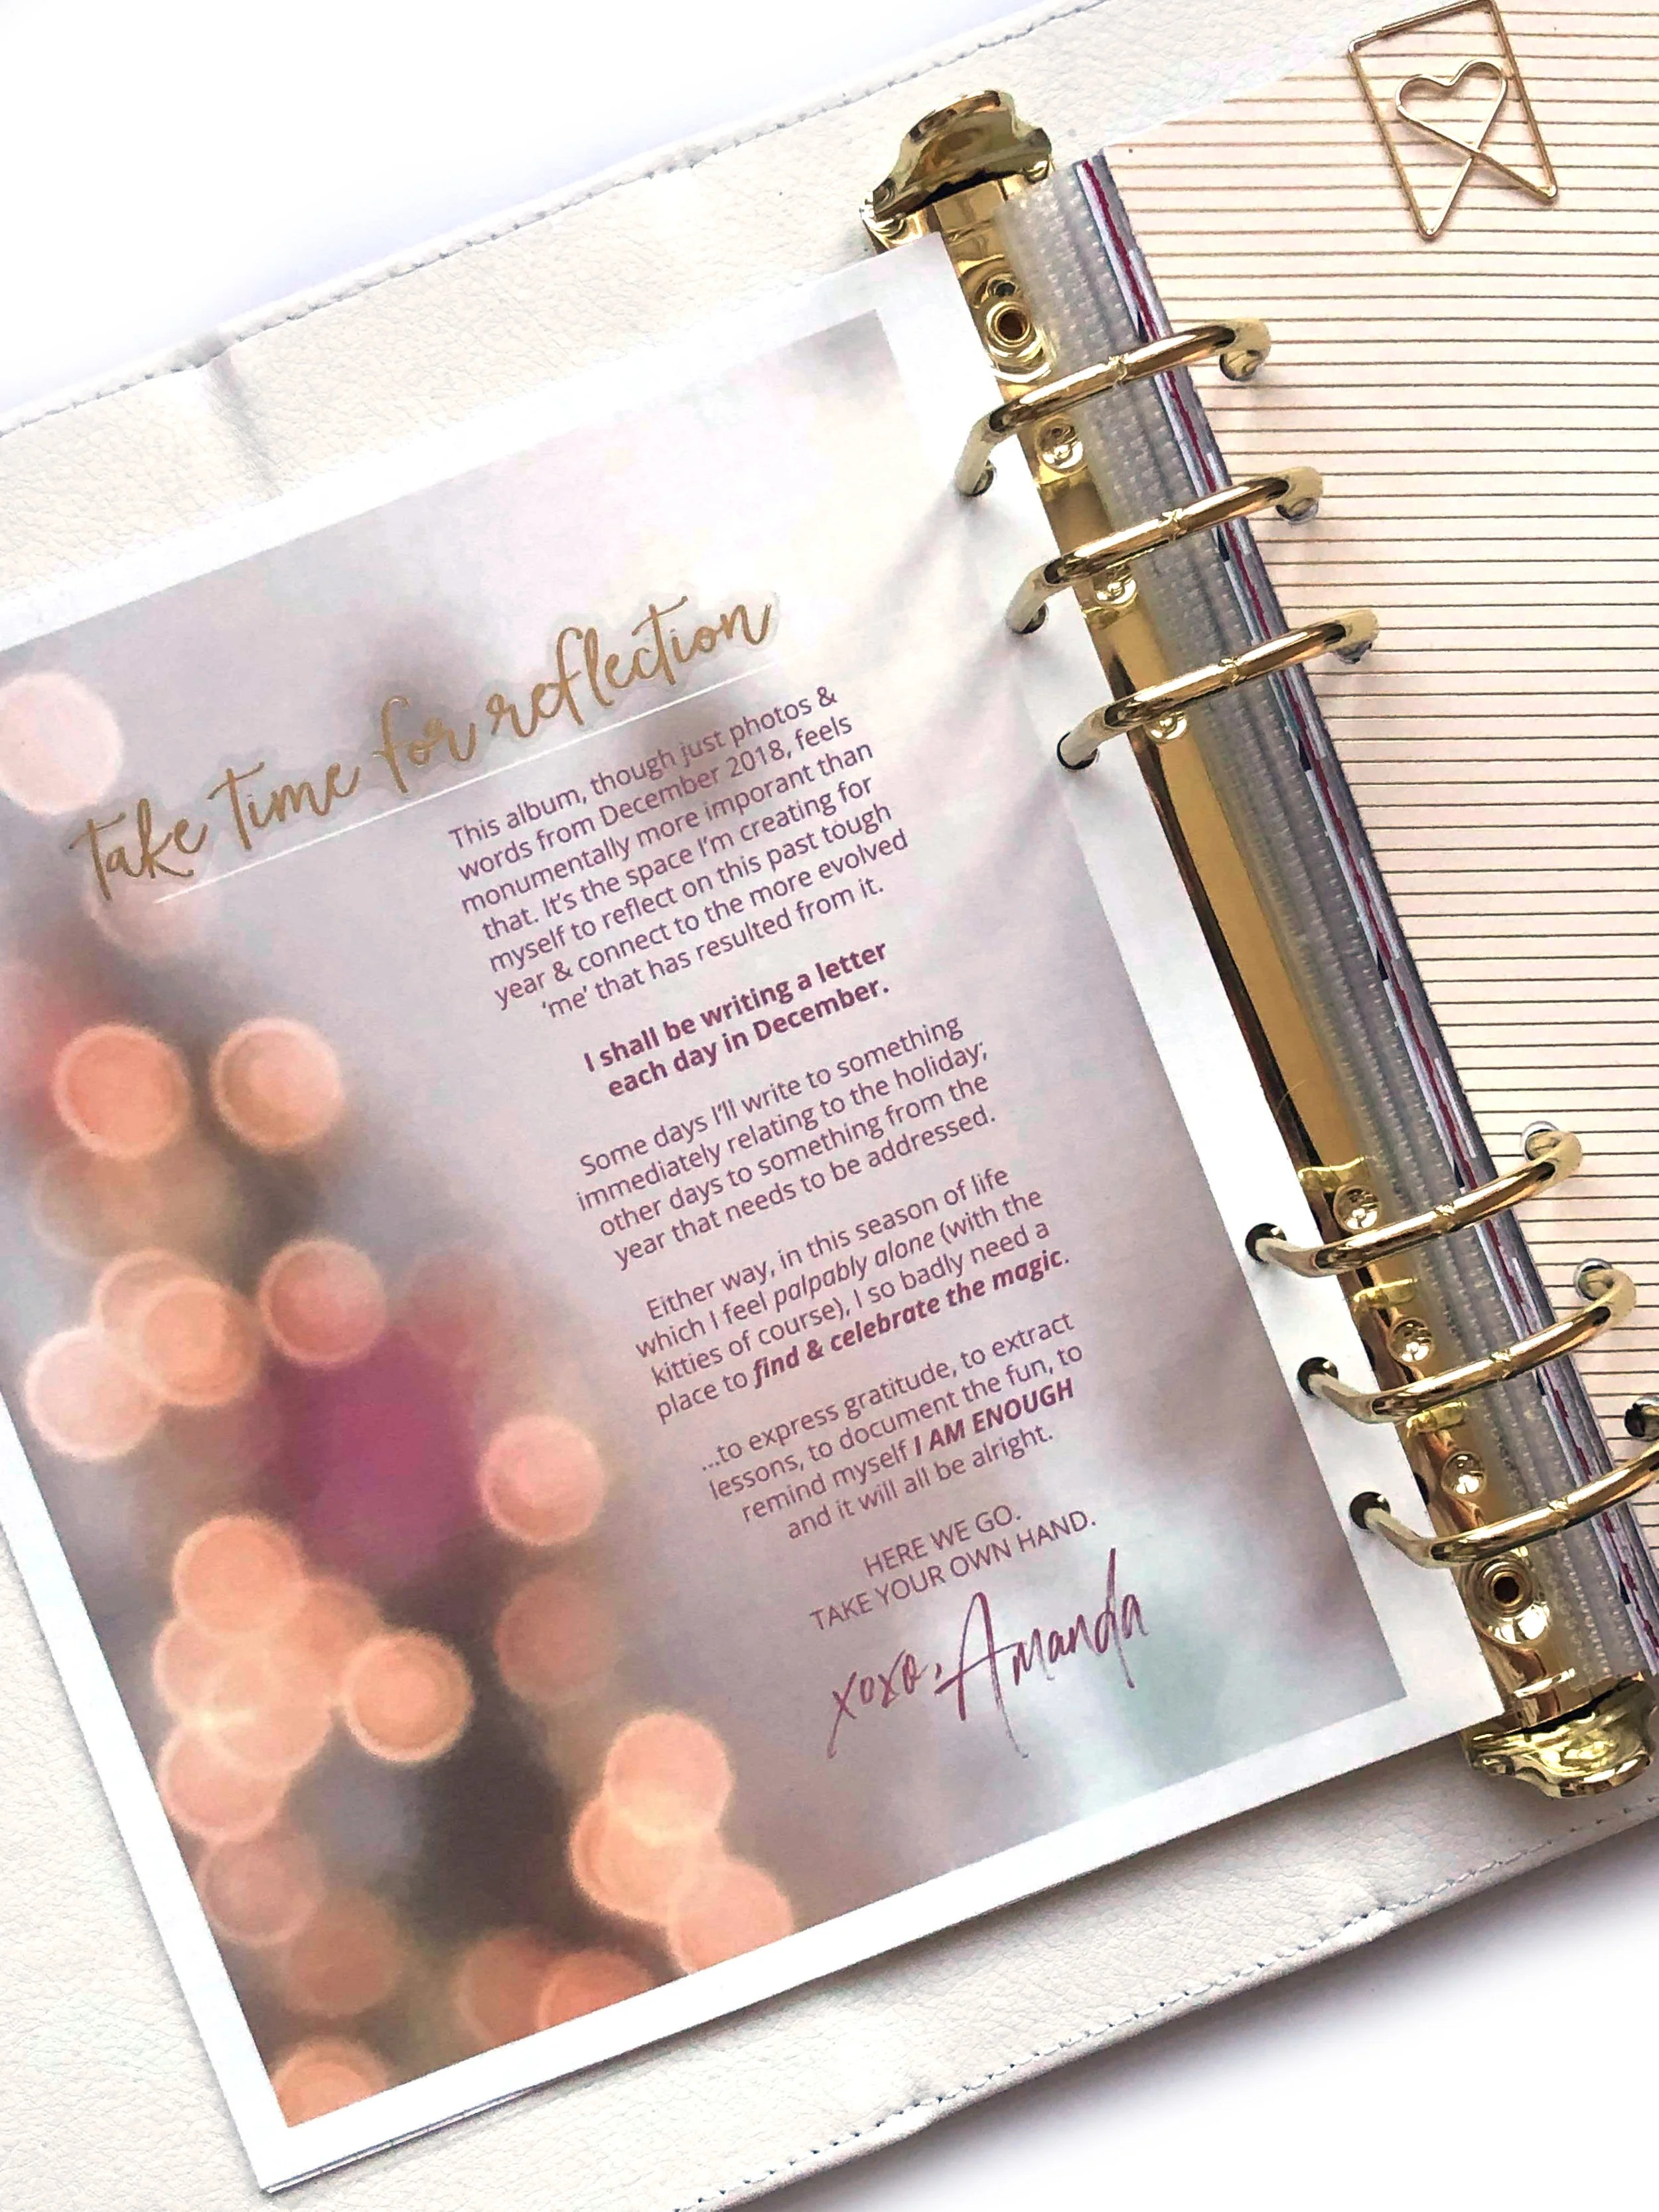 take time for reflection
This album, though just photos &
words from December 2018, feels
monumentally more imporant than
that. It's the space I'm creating for
myself to reflect on this past tough
year & connect to the more evolved
'me' that has resulted from it.
I shall be writing a letter
each day in December.
Some days I'll write to something
immediately relating to the holiday;
other days to something from the
year that needs to be addressed.
Either way, in this season of life
which I feel palpably alone (with the
kitties of course), I so badly need a
place to find & celebrate the magic.
...to express gratitude, to extract
lessons, to document the fun, to
remind myself I AM ENOUGH
and it will all be alright.
HERE WE GO.
TAKE YOUR OWN HAND.
xoxo, Amanda